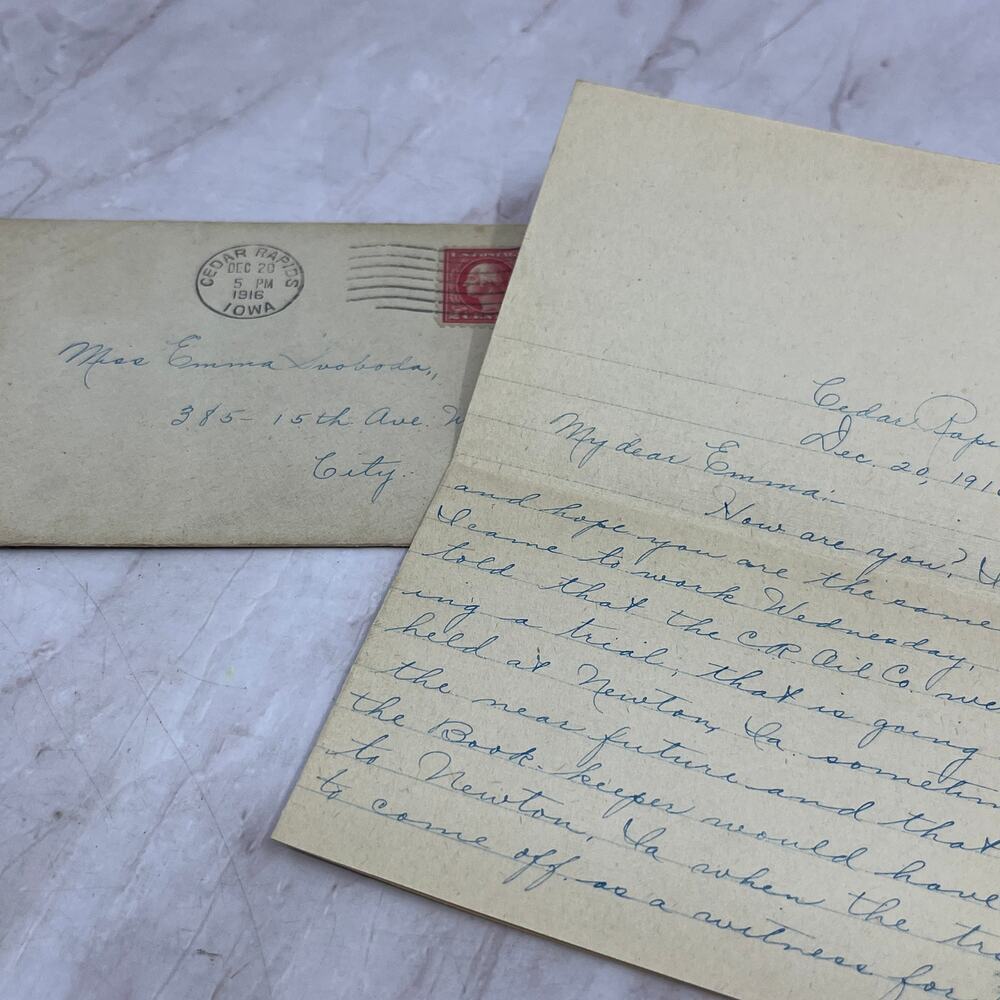 CEDAR RAPIDS
DEC 20
5 PM
1916
IOWA
Miss Emma Svoboda,
385- 15th Ave. W
City.
Cedar Rapi
Dec. 20, 191
My dear Emma:-
How are you? I
and hope you are the same
I came to work Wednesday,
told that the C.R. Oil Co. we
ing a trial, that is going
held at Newton, Ia. sometim
the near future and that
the Book-keeper would have
to Newton, Ia when the tr
to come off as a witness for